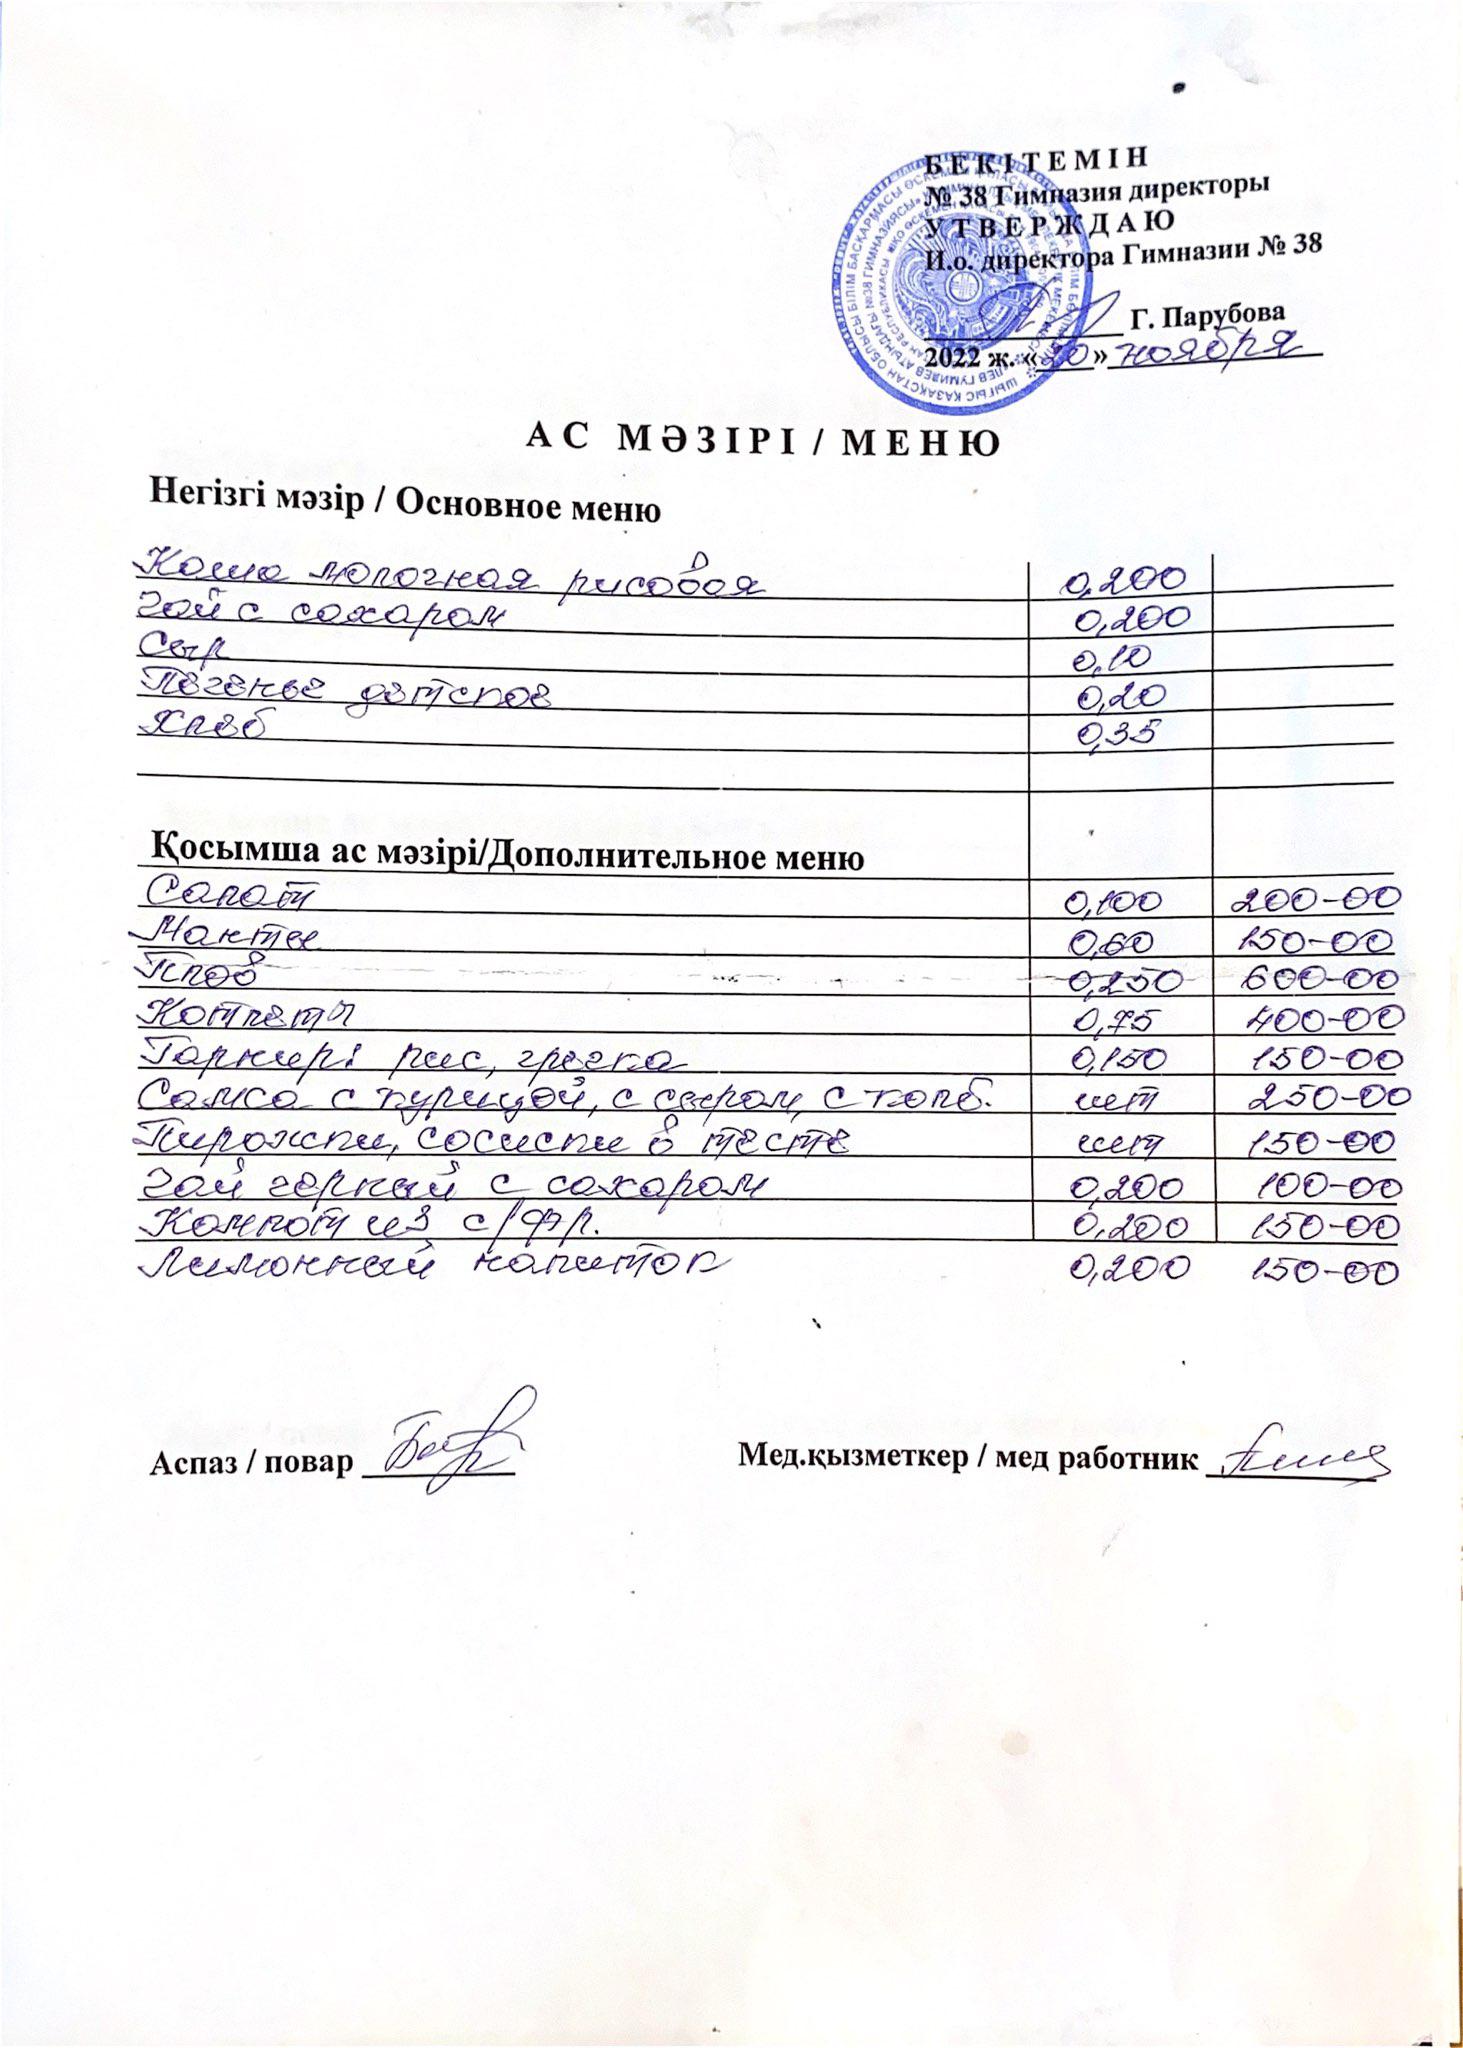 БЕКІТЕМІН
№ 38 Гимназия директоры
УТВЕРЖДАЮ
И.о. директора Гимназии № 38
Г. Парубова
2022 ж. «20» ноября
АС МӘЗІРІ / МЕНЮ
Негізгі мәзір / Основное меню
Каша молочная рисовая 0,200
Чай с сахаром 0,200
Сыр 0,10
Печенье детское 0,20
Хлеб 0,35
Қосымша ас мәзірі/Дополнительное меню
Салат 0,100 200-00
Манты 0,60 150-00
Плов 0,250 600-00
Котлеты 0,75 400-00
Гарнир: рис, гречка 0,150 150-00
Самса с курицей, с сыром, с колб. шт 250-00
Пирожки, сосиски в тесте шт 150-00
Чай черный с сахаром 0,200 100-00
Компот из с/фр. 0,200 150-00
Лимонный напиток 0,200 150-00
Аспаз / повар
Мед.қызметкер / мед работник